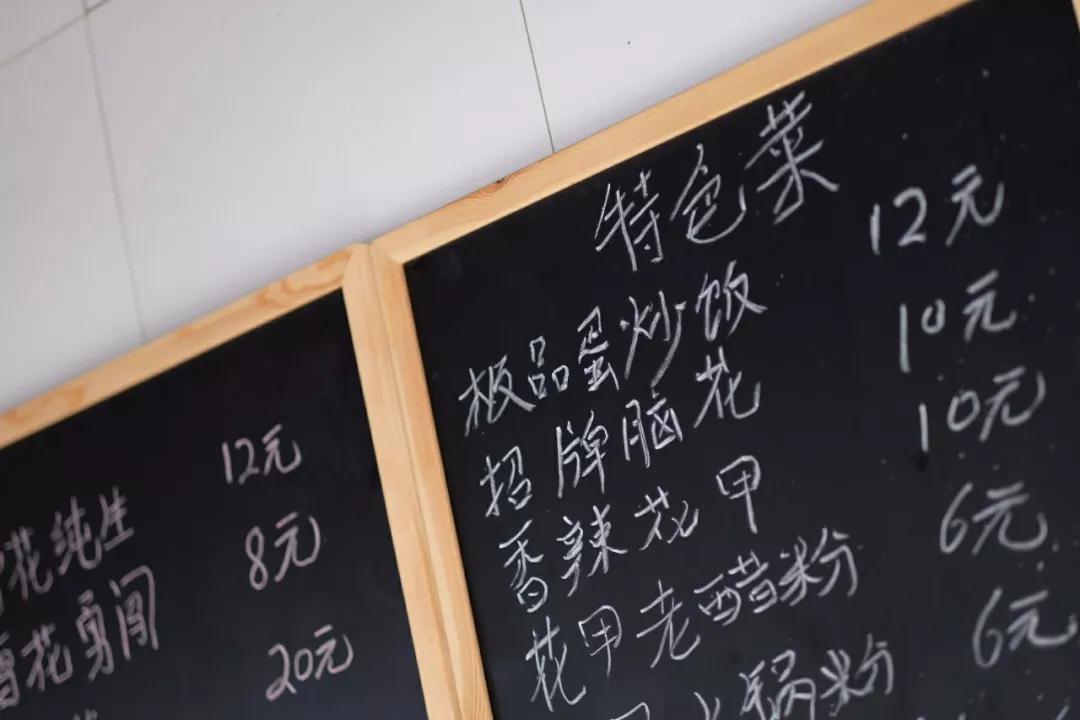 12元
花纯生 8元
雪花勇闯 20元
特色菜
极品蛋炒饭 12元
招牌脑花 10元
香辣花甲 10元
花甲老醋粉 6元
锅粉 6元